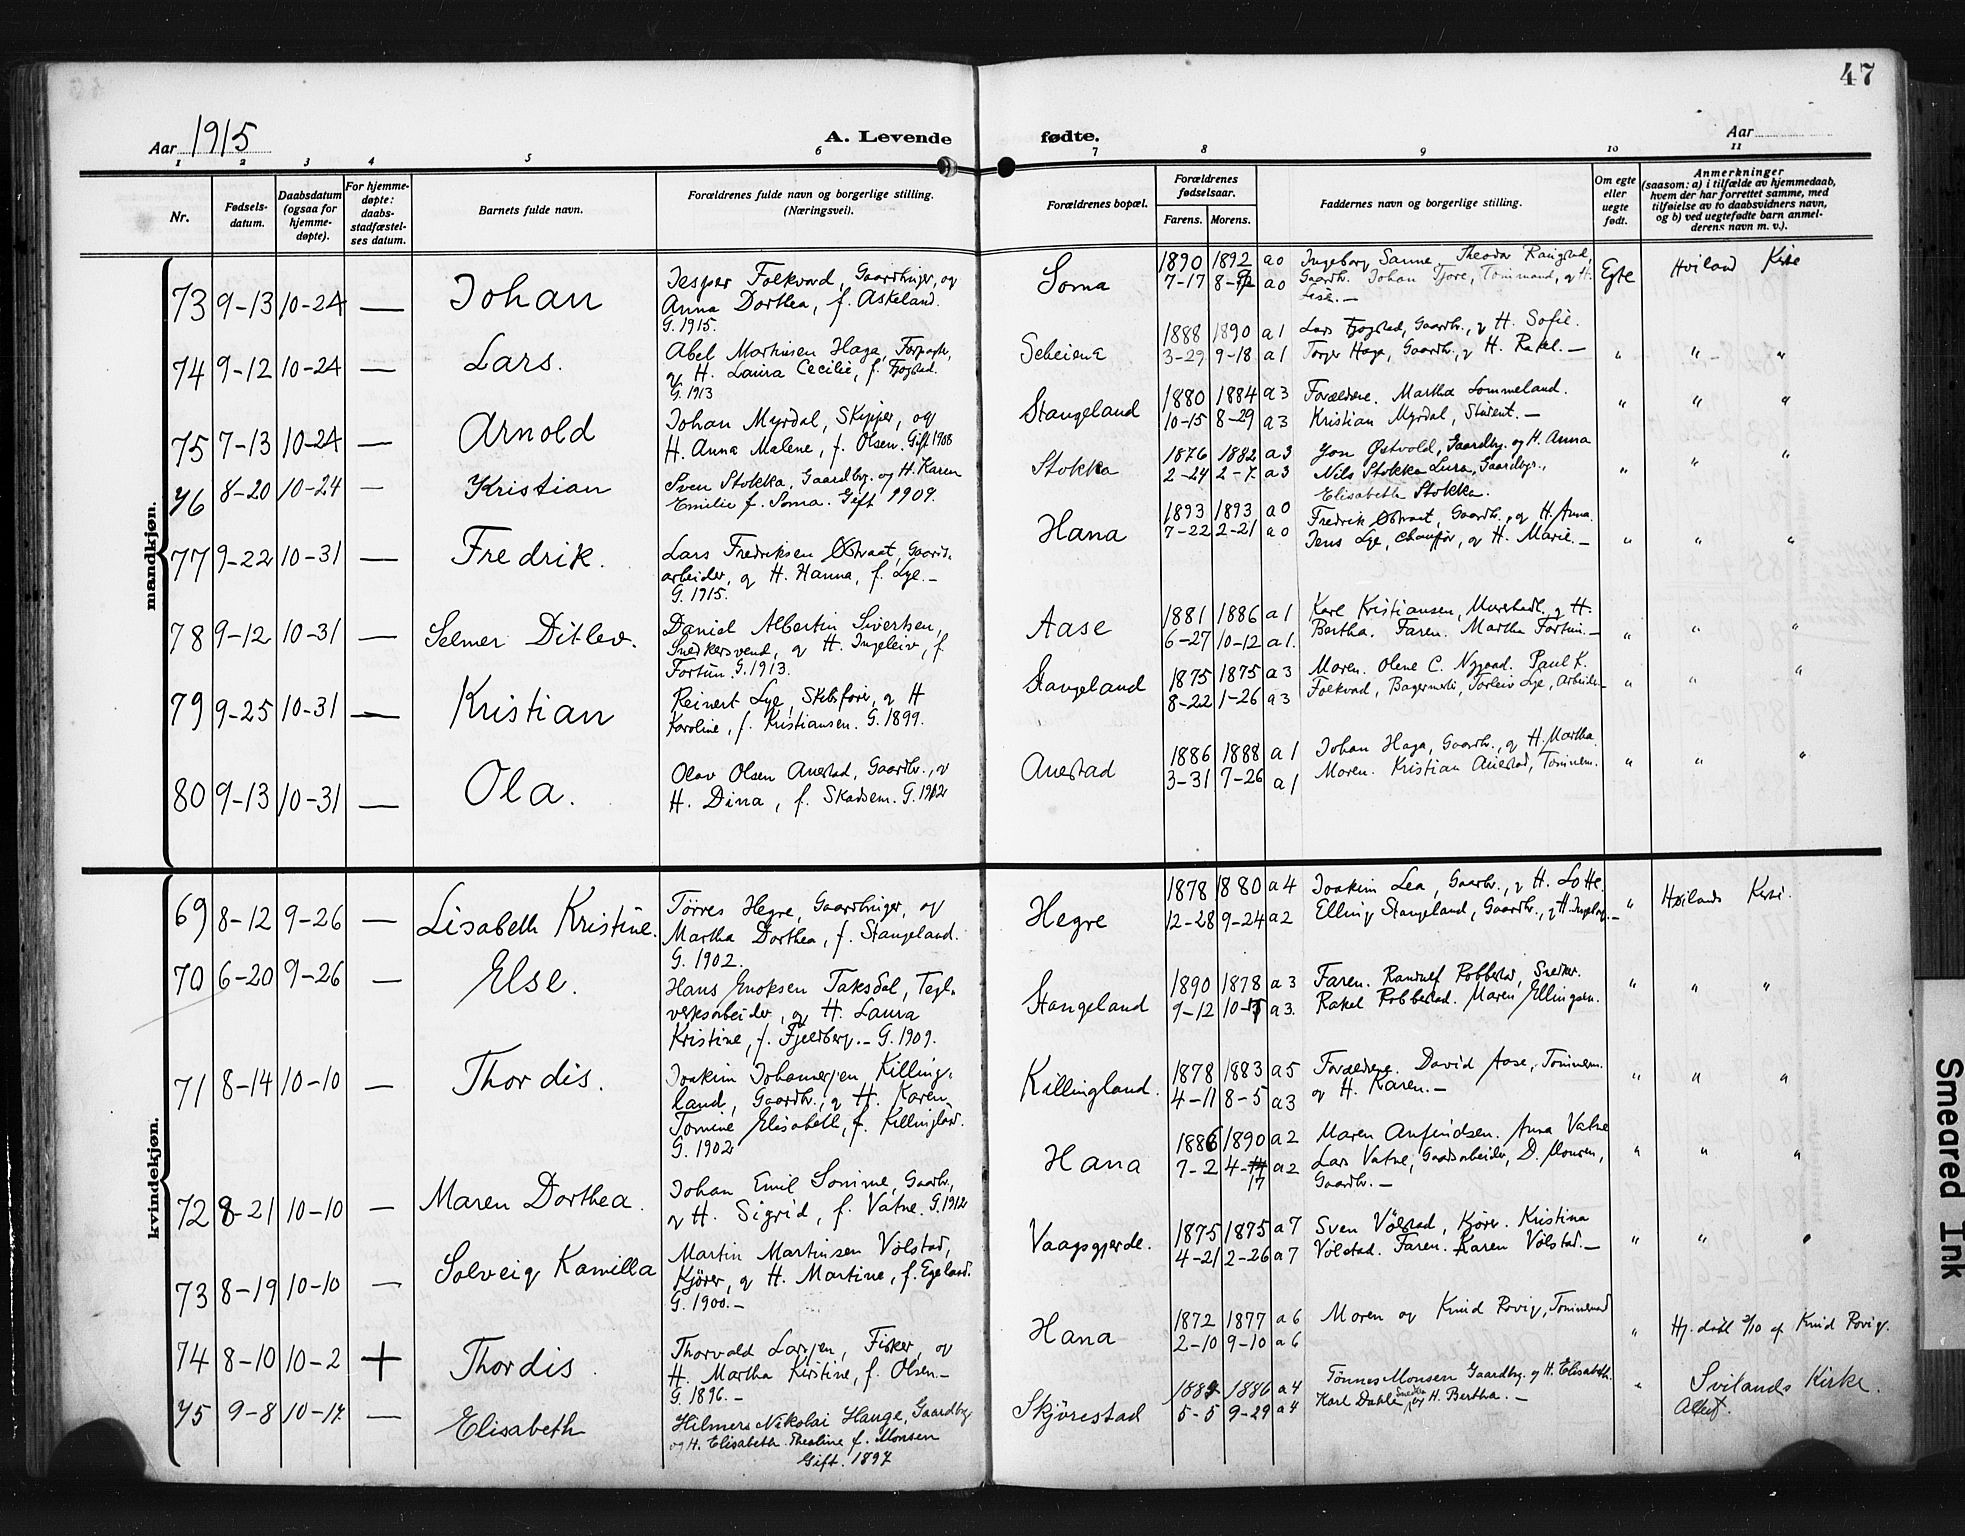 47
Aar 1915
A. Levende
fødte.
Aar
1 2 3 4 5 6 7 8 9 10 11
Nr.
Fødsels-
datum.
Daabsdatum
(ogsaa for
hjemme-
døpte).
For hjemme-
døpte:
daabs-
stadfæstel-
ses datum.
Barnets fulde navn.
Forældrenes fulde navn og borgerlige stilling.
(Næringsvei).
Forældrenes bopæl.
Forældrenes
fødselsaar.
Farens. Morens.
Faddernes navn og borgerlige stilling.
Om egte
eller
uegte
født.
Anmerkninger
(saasom: a) i tilfælde av hjemmedaab,
hvem der har forrettet samme, med
tilføielse av to daabsvidners navn,
og b) ved uegtefødte barn anmel-
derens navn m. v.).
mandkjøn.
73 9-13 10-24 — Johan
Jesper Folkvord, Gaardbruger, og
Anna Dorthea, f. Askeland.
G. 1915.
Soma
1890 1892 a0
7-17 8- a0
Ingeborg Sanne. Theodor
Gaardb. Johan Fjore, Tømmerm., og H.
Lise. —
Egte
Høiland Kirke
74 9-12 10-24 — Lars.
Abel Martinsen Haga, Forpagt.,
og H. Laura Cecilie, f. Fjogstad.
G. 1913
Scheiene
1888 1890 a1
3-29 9-18 a1
Lars Fjogstad, Gaardbr., og H. Sofie.
Torger Haga, Gaardb., og H. Rakel. —
" " "
75 7-13 10-24 — Arnold
Johan Myrdal, Skipper, og
H. Anna Malene, f. Olsen. Gift 1908
Stangeland
1880 1884 a3
10-15 8-29 a3
Forældrene. Martha Sommeland.
Kristian Myrdal, Student. —
" " "
76 8-20 10-24 — Kristian
Sven Stokka, Gaardbg. og H. Karen
Emilie f. Soma. Gift 1909.
Stokka
1876 1882 a3
2-24 2-7. a3
Jon Østvold, Gaardbg. og H. Anna
Nils Stokka Lura, Gaardbgr.,
Elisabeth Stokka.
" " "
77 9-22 10-31 — Fredrik.
Lars Fredriksen Østraat, Gaards-
arbeider, og H. Hanna, f. Lye. —
G. 1915.
Hana
1893 1893 a0
7-22 2-21 a0
Fredrik Østraat, Gaardb., og H. Anna.
Jens Lye, Chauffør, og H. Marie. —
" " "
78 9-12 10-31 — Selmer Ditlev.
Daniel Albertin Sivertsen,
Snedkersvend, og H. Ingeleiv, f.
Fortun. G. 1913.
Aase
1881 1886 a1
6-27 10-12 a1.
Karl Kristiansen, og H.
Bertha. Faren. Martha Fortun. —
" " "
79 9-25 10-31 — Kristian
Reinert Lye, Skibsfører, og H
Karoline, f. Kristiansen. G. 1899.
Stangeland
1875 1875 a3
8-22 1-26 a3
Moren. Olene C. Nygaard. Paul K.
Folkvord, Bagermester, Torleiv Lye, Arbeider —
" " "
80 9-13 10-31 — Ola.
Olav Olsen Auestad, Gaardb., og
H. Dina, f. Skadsem. G. 1912
Auestad
1886 1888 a1
3-31 7-26 a1
Johan Haga, Gaardb., og H. Martha.
Moren. Kristian Auestad, Tømmerm.
" " "
kvindekjøn.
69 8-12 9-26 — Lisabeth Kristine.
Tørres Hegre, Gaardbruger, og
Martha Dorthea, f. Stangeland.
G. 1902.
Hegre
1878 1880 a4
12-28 9-24 a2
Joakim Lea, Gaardbr., og H. Lotte.
Elling Stangeland, Gaardbr., og H. Ingeborg. —
"
Høilands Kirke.
70 6-20 9-26 — Else.
Hans Enoksen Taksdal, Tegl-
verksarbeider, og H. Laura
Kristine, f. Fjeldberg. — G. 1909.
Stangeland
1890 1878 a3
9-12 10- a3.
Faren. Randulf Robberstad, Snedker.
Rakel Robberstad. Maren Ellingsen.
" " "
71 8-14 10-10 — Thordis.
Joakim Johannesen Killing-
land, Gaardb., og H. Karen
Tomine Elisabeth, f. Killingland.
G. 1902
Killingland.
1878 1883 a5
4-11 8-5 a3
Forældrene. David Aase, Tømmerm.
og H. Karen. —
" " "
72 8-21 10-10 — Maren Dorthea.
Johan Emil Sømme, Gaardb.,
og H. Sigrid, f. Vatne. G. 1912
Hana
1886 1890 a2
7-2 4-17 a2
Maren Anfindsen. Anna Vatne
Lars Vatne, Gaardsarbeider, D. Monsen,
Gaardb. —
" " "
73 8-19 10-10 — Solveig Kamilla
Martin Martinsen Vølstad,
Kjører, og H. Martine, f. Egeland.
G. 1900. —
Vaagsgjerde.
1875 1875 a7
4-21 2-26 a7
Sven Vølstad, Kjører. Kristina
Vølstad. Faren. Karen Vølstad. —
" " "
74 8-10 10-2 + Thordis.
Thorvald Larsen, Fisker, og
H. Martha Kirstine, f. Olsen —
G. 1896. —
Hana
1872 1877 a6
2-10 9-10 a6
Moren og Knud Rovig, Tømmermand
"
Hj. døbt 2/10 af Knud Rovig.
75 9-8 10-17. — Elisabeth
Hilmers Nikolai Hauge, Gaardbg.
og H. Elisabeth Thealine f. Monsen
Gift. 1897
Skjørestad
1886 a4
5-5 9-29 a4
Tønnes Monsen Gaardbg. og H. Elisabeth.
Karl Dahle Snedker og H. Bertha. —
"
Svilands Kirke.
Attest.
Smeared Ink